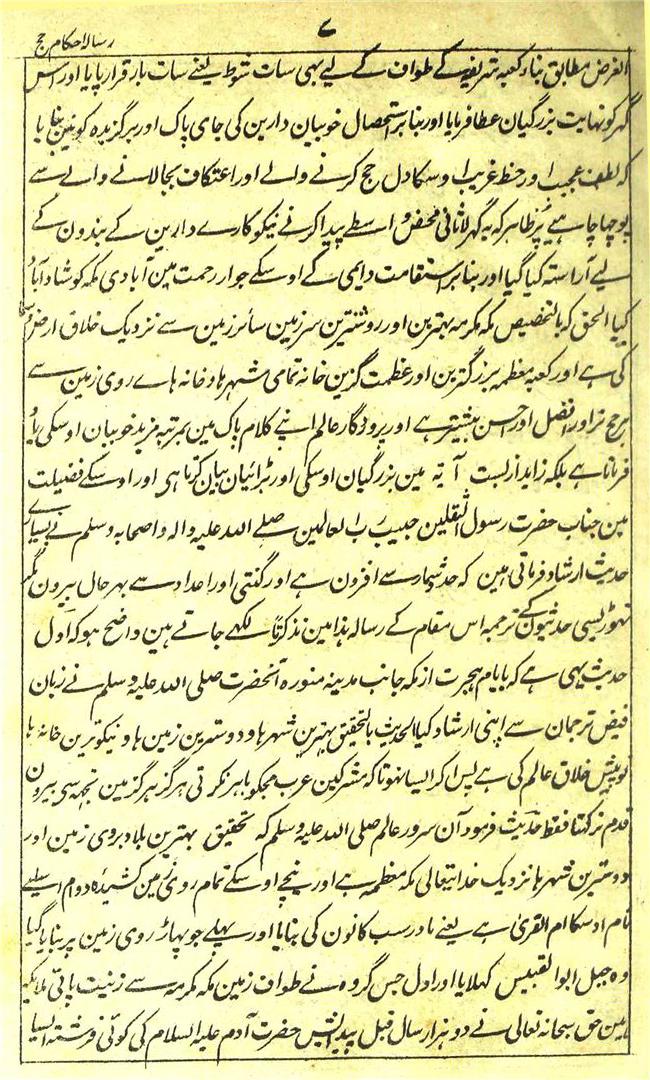 ۷
رسالہ احکام حج
الغرض مطابق بناء کعبہ شریفہ کے طواف کے لیے یہی سات شوط یعنے سات بار قرار پایا اور اس
گہر کو نہایت بزرگیان عطا فرمایا اور بنا بر استحصال خوبیان دارین کی جای پاک اور برگزیدہ کونین بنایا
کہ لطف عجیب اور حظ غریب اوسکا دل حج کرنے والے اور اعتکاف بجالانے والے سے
پوچہا چاہیے پر ظاہر کہ یہ گہر لاثانی محض واسطے پیدا کرنے نیکوکارے دارین کے بندون کے
لیے آراستہ کیا گیا اور بنا بر استقامت دایمی کے اوسکے جوار رحمت مین آبادی مکہ کو شاد آباد
کیا الحق کہ بالتخصیص مکہ مکرمہ بہترین اور روشنترین سرزمین سائر زمین سے نزدیک خلاق ارض و سما
کی ہے اور کعبہ معظمہ بزرگترین اور عظمت گزین خانہ تمامی شہرہا و خانہ ہاے روی زمین سے
مرجح تر اور افضل اور احسن بیشتر ہے اور پروردگار عالم اپنے کلام پاک مین بمرتبہ مزید خوبیان اوسکی یاد
فرماتا ہے بلکہ زاید از بست آیہ مین بزرگیان اوسکی اور بڑائیان بیان کرتا ہی اور اوسکے فضیلت
مین جناب حضرت رسول الثقلین حبیب رب العالمین صلے اللہ علیہ والہ واصحابہ وسلم نے بسیاری
حدیث ارشاد فرماتی ہین کہ حد شمار سے افزون ہے اور گنتی اور اعداد سے بہر حال بیرون مگر
تہوڑیسی حدثیون کے ترجمہ اس مقام کے رسالہ ہذا مین تذکرتاً لکہے جاتے ہین واضح ہو کہ اول
حدیث یہی ہے کہ بایام ہجرت از مکہ جانب مدینہ منورہ آنحضرت صلی اللہ علیہ وسلم نے زبان
فیض ترجمان سے اپنی ارشاد کیا الحدیث بالتحقیق بہترین شہرہا و دوسترین زمین ہا و نیکوترین خانہ ہا
تو پیش خلاق عالم کی ہے پس اگر ایسا نہوتا کہ مشرکین عرب مجکو باہر نکرتی ہرگز ہرگز مین تجہہ سی بیرون
قدم نرکہتا فقط حدیث فرمود آن سرور عالم صلی اللہ علیہ وسلم کہ تحقیق بہترین بلاد بروی زمین اور
دوسترین شہرہا نزدیک خدایتعالی مکہ معظمہ ہے اور نیچے اوسکے تمام روئ زمین کشیدہ دوام اسلیے
نام اوسکا ام القری ہے یعنے مادر سب کانون کی بنایا اور پہلے جو پہاڑ روی زمین پر بنایا گیا
وہ جبل ابو القبیس کہلایا اور اول جس گروہ نے طواف زمین مکہ مکرمہ سے زنیت پائی ملائکہ
ہین حق سبحانہ تعالی نے دو ہزار سال قبل پیدایش حضرت آدم علیہ السلام کی کوئی فرشتہ ایسا